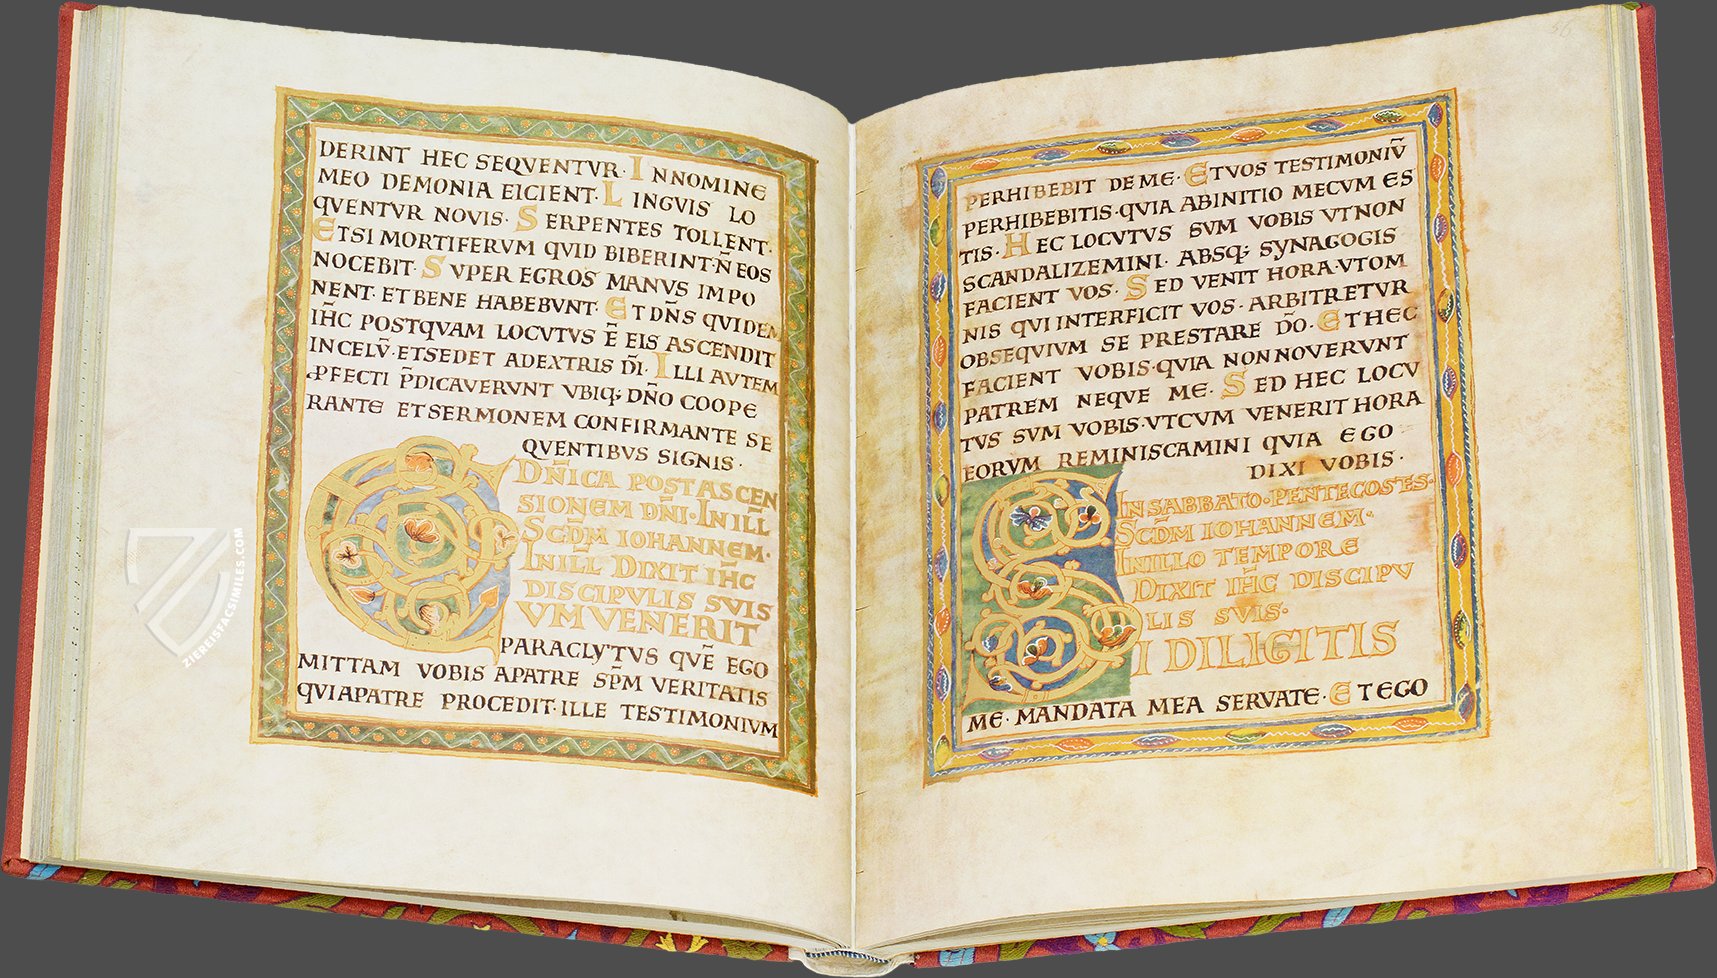 DERINT HEC SEQVENTVR· INNOMINE
MEO DEMONIA EICIENT· LINGVIS LO
QVENTVR NOVIS· SERPENTES TOLLENT·
ETSI MORTIFERVM QVID BIBERINT· N̄ EOS
NOCEBIT· SVPER EGROS MANVS IMPO
NENT· ET BENE HABEBVNT· ET DN̄S QVIDEM
IH̄C POSTQVAM LOCVTVS Ē EIS ASCENDIT
INCELV̄· ETSEDET ADEXTRIS DI· ILLI AVTEM
PFECTI P̄DICAVERVNT VBIQ; DN̄O COOPE
RANTE ETSERMONEM CONFIRMANTE SE
QVENTIBVS SIGNIS·
DN̄ICA POST ASCEN
SIONEM DN̄I· IN ILL̄
SCD̄M IOHANNEM·
INILL̄ DIXIT IH̄C
DISCIPVLIS SVIS
CVM VENERIT
PARACLYTVS QVĒ EGO
MITTAM VOBIS APATRE SP̄M VERITATIS
QVIAPATRE PROCEDIT· ILLE TESTIMONIVM
56
PERHIBEBIT DEME· ETVOS TESTIMONIV̄
PERHIBEBITIS· QVIA ABINITIO MECVM ES
TIS· HEC LOCVTVS SVM VOBIS VTNON
SCANDALIZEMINI· ABSQ; SYNAGOGIS
FACIENT VOS· SED VENIT HORA· VTOM
NIS QVI INTERFICIT VOS· ARBITRETVR
OBSEQVIVM SE PRESTARE DŌ· ETHEC
FACIENT VOBIS· QVIA NONNOVERVNT
PATREM NEQVE ME· SED HEC LOCV
TVS SVM VOBIS· VTCVM VENERIT HORA
EORVM REMINISCAMINI QVIA EGO
DIXI VOBIS·
IN SABBATO· PENTECOSTES·
SCD̄M IOHANNEM·
INILLO TEMPORE
DIXIT IH̄C DISCIPV
LIS SVIS·
SI DILIGITIS
ME· MANDATA MEA SERVATE· ET EGO
ZIEREISFACSIMILES.COM